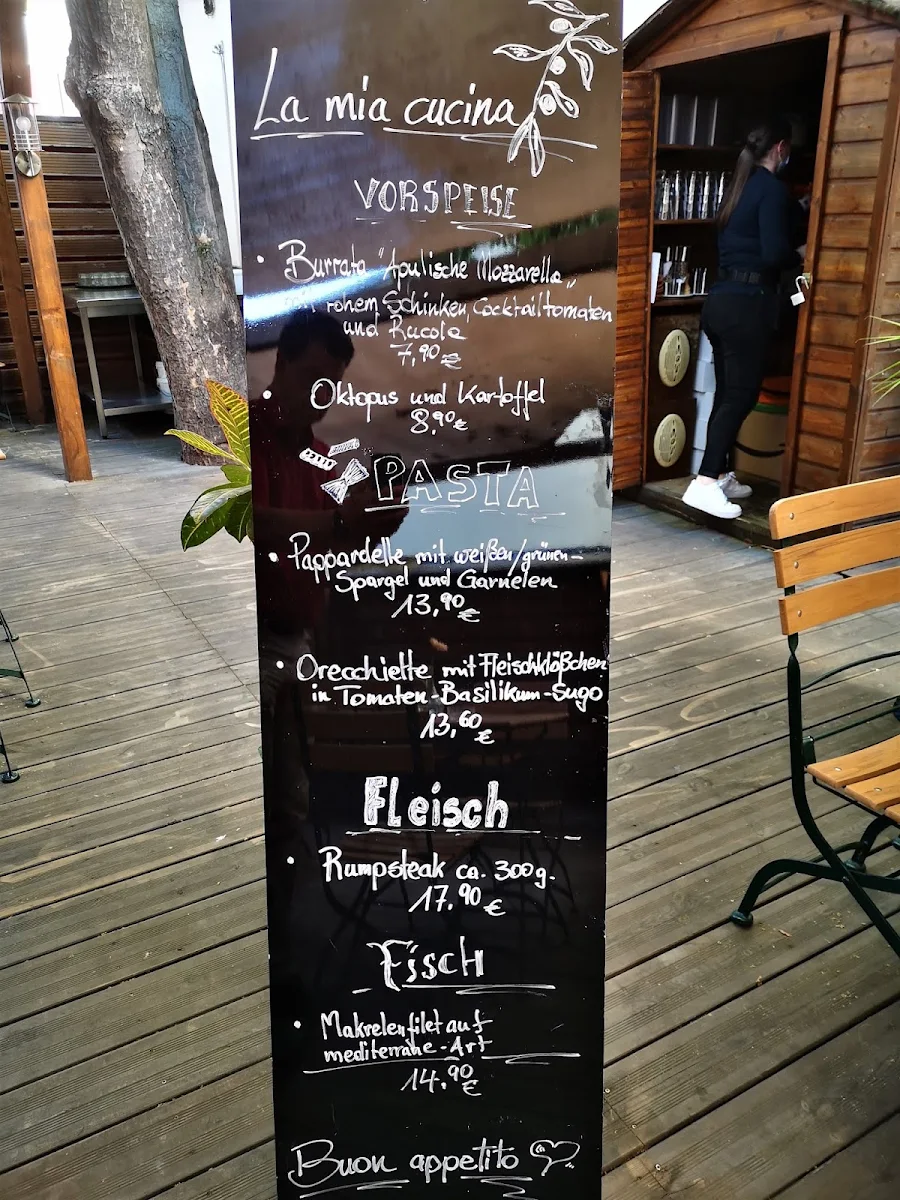 La mia cucina
VORSPEISE
• Burrata "Apulische Mozzarella"
rohem Schinken, Cocktailtomaten
und Rucola
7,90€
• Oktopus und Kartoffel
8,90€
PASTA
• Pappardelle mit weißen/grünen-
Spargel und Garnelen
13,90€
• Orecchiette mit Fleischklößchen
in Tomaten-Basilikum-Sugo
13,60€
Fleisch
• Rumpsteak ca. 300g.
17,90€
Fisch
• Makrelenfilet auf
mediterrane-Art
14,90€
Buon appetito